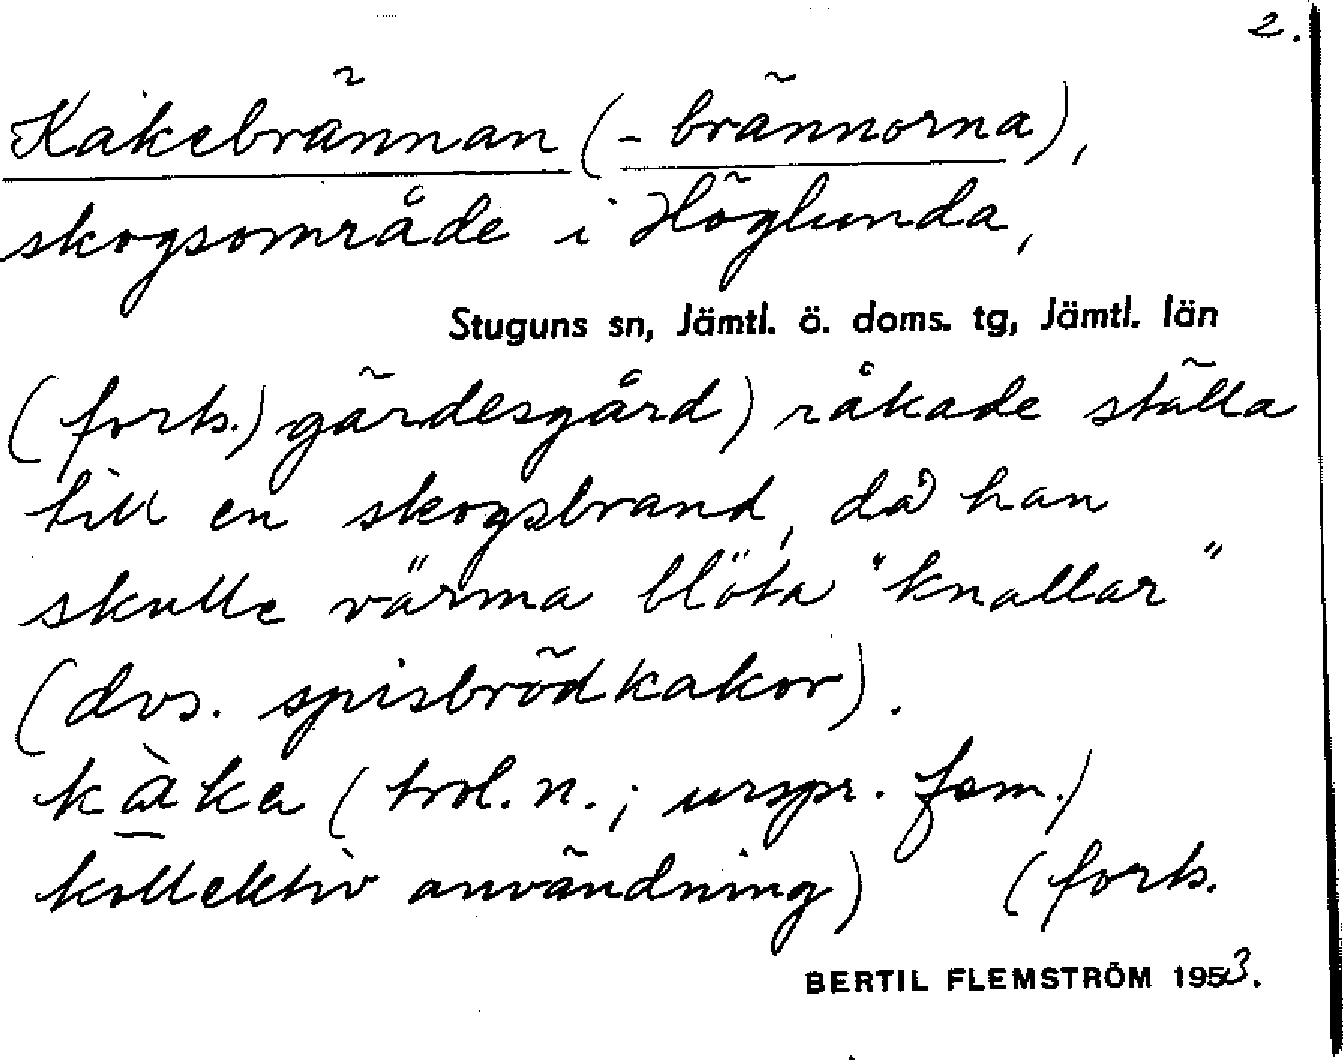 2.
Kakebrännan (-brännorna),
skogsområde i Höglunda,
Stuguns sn, Jämtl. ö. doms. tg, Jämtl. län
(forts.) gärdesgård) råkade ställa
till en skogsbrand, då han
skulle värma blöta "knallar"
(dvs. spisbrödkakor).
kàka (trol. n.; urspr. fem.)
kollektiv användning) (forts.
BERTIL FLEMSTRÖM 1953.